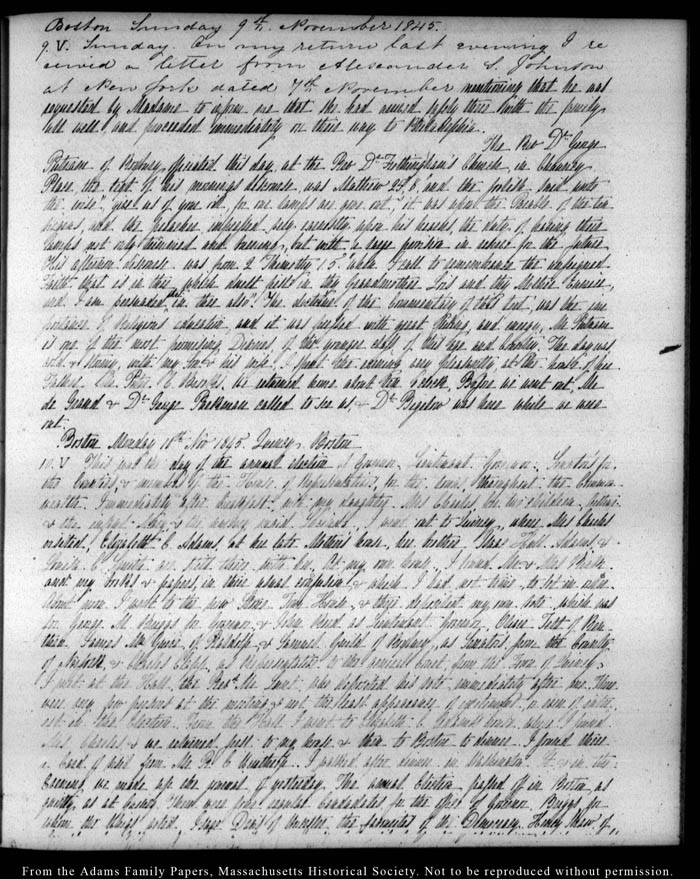 Boston Sunday 9th. November 1845.
9. V. Sunday. On my return last evening I re
ceived a letter from Alexander S. Johnson
at New York dated 7th November mentioning that he was
requested by Madame to inform me that she had arrived safely there with the family
all well and proceeded immediately on their way to Philadelphia.
The Rev Dr. George
Putnam of Roxbury officiated this day at the Rev Dr. Frothingham's Church in Chauncy
Place. the text of his morning discourse was Matthew 25. 8. and the foolish said unto
the wise, give us of your oil for our lamps are gone out, it was upon the Parable of the ten
virgins, and the preacher very earnestly upon his hearers, the duty of having their
lamps not only trimmed and burning, but with a large provision in reserve for the future
His afternoon discourse was from 2 Timothy 1. 5. when I call to remembrance the unfeigned
Faith that is in thee, which dwelt first in thy Grandmother Lois and thy Mother Eunice,
and I am persuaded that in thee also. The doctrine of the of this text, was the im
portance of religious education, and it was with great and Mr. Putnam
is one of the most promising Divines, of the younger class of this age and Country. The day was
cold & with my Son & his wife. I spent the evening very pleasantly at the house of her
Father. Mr. Peter C. Brooks, We returned home about ten o'clock. Before we went out, Mr.
de Grand & Dr. George Parkman called to see us, & Dr. Bigelow was here while we were
out.
Boston Monday 10th Nov 1845. Quincy. Boston
10. V. This was the day of the annual election of Governor, Lieutenant Governor, Senators for
the Counties & members of the House of Representatives, for the towns throughout the Common
wealth. Immediately after breakfast, with my daughter Mrs Charles, her two children,
& the infant & the nursery maid I went out to Quincy, where Mrs Charles
visited Elizabeth C. Adams, at her late Mother's house, her brother Isaac Hull Adams, &
C. are there with her. At my own house, I found Mr & Mrs
and my books & papers, in their usual confusion & which I had not time to set in order
About noon I went to the new Stone Town House, & there deposited my own vote, which was
for George N. Briggs for Governor & John Reed as Lieutenant Governor,
James of Randolph & Samuel Guild of Roxbury, as Senators from the County
of Norfolk, & as Representative to the General Court from the Town of Quincy.
I met at the Hall, the Revd. Mr. Lunt, who deposited his vote immediately after me. There
were very few persons at the meeting & not the least appearance of excitement, or even of inter
est in the Election. From the Hall I went to Elizabeth C. Adams's house where I found
Mrs. Charles & we returned first to my house & then to Boston to dinner. I found there
a Card of visit from Mr. R. C. Winthrop. I after dinner in & in the
Evening we made up the journal of yesterday. The annual Election passed off in Boston as
quietly as at There were four Candidates for the office of Governor. Briggs, for
whom the Whigs voted. Isaac Davis of Worcester, the favourite of the Democracy, Henry Shaw of
From the Adams Family Papers, Massachusetts Historical Society. Not to be reproduced without permission.